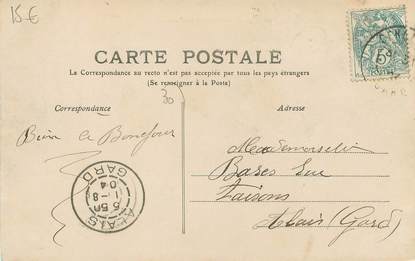 15€
CARTE POSTALE
La Correspondance au recto n'est pas acceptée par tous les pays étrangers
(Se renseigner à la Poste)
Correspondance
Adresse
30
Bien le Bonjour
Mademoiselle
Alais (Gard)
5c
ALAIS
5 50
1 - 8
04
GARD